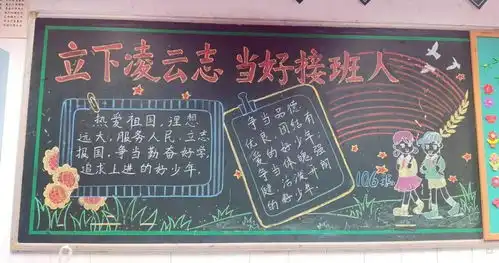 立下凌云志 当好接班人
热爱祖国，理想
远大，服务人民，立志
报国，争当勤奋好学，
追求上进的好少年。
争当品德
优良，团结友
爱的好少年，
争当体魄强
健、活泼开朗
的好少年。
106班